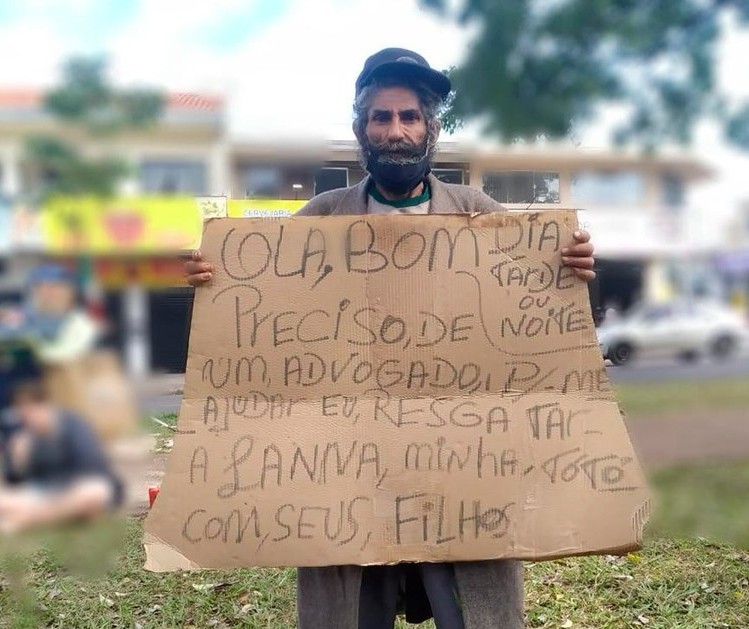 OLA, BOM DIA
TARDE
OU
NOITE
PRECISO, DE
UM, ADVOGADO, P/-ME
AJUDAR EU, RESGATAR-
A LANNA, MINHA, TOTÓ
COM, SEUS, FILHOS
CERVEJARIA